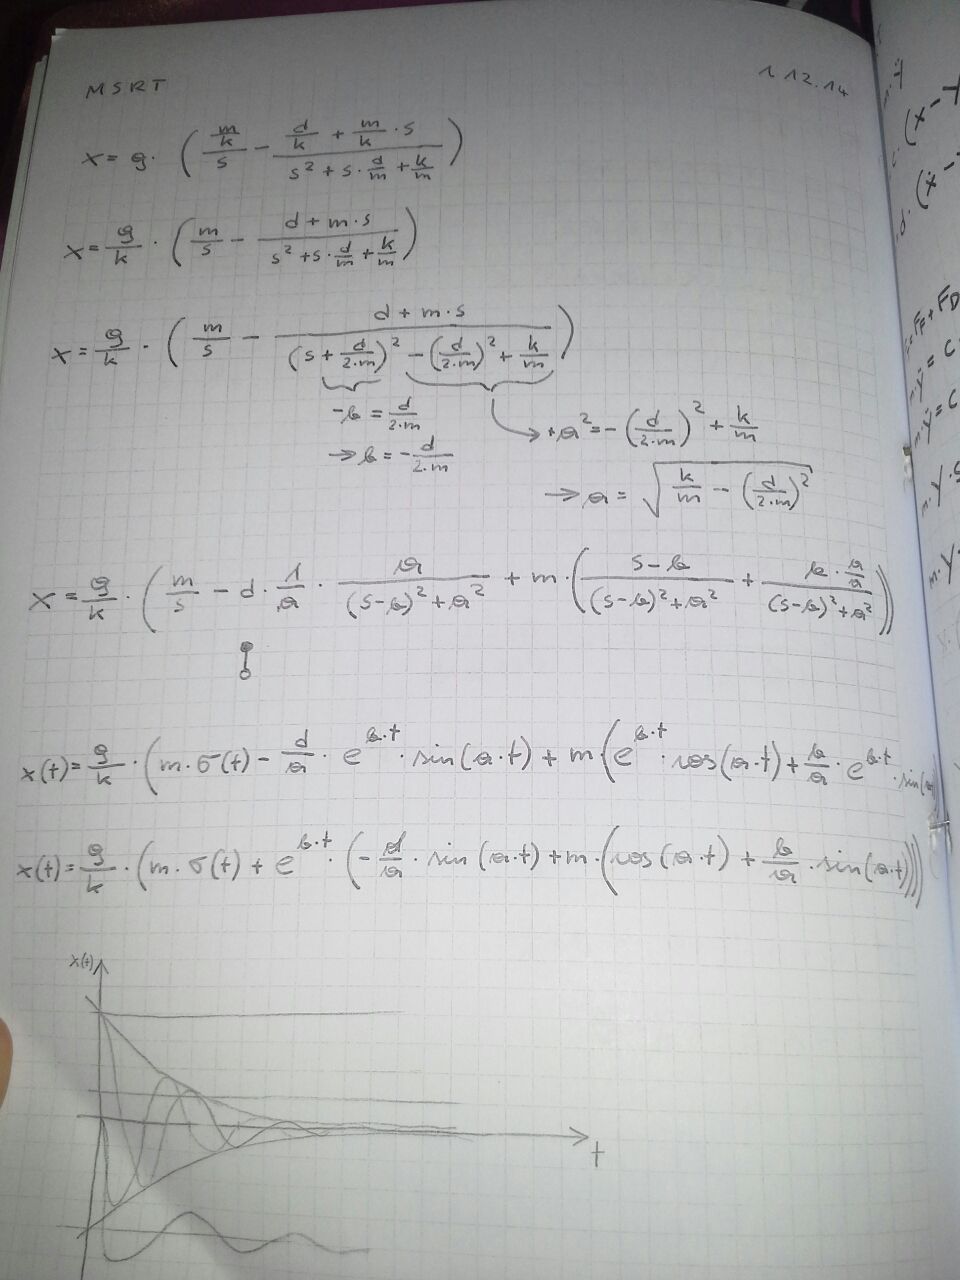 MSRT 1.12.14
x = g · ( (m/k)/s − (d/k + m/k · s)/(s² + s · d/m + k/m) )
x = g/k · ( m/s − (d + m · s)/(s² + s · d/m + k/m) )
x = g/k · ( m/s − (d + m · s)/((s + d/(2·m))² − (d/(2·m))² + k/m) )
−b = d/(2·m)
→ b = −d/(2·m)
→ +a² = −(d/(2·m))² + k/m
→ a = √(k/m − (d/(2·m))²)
x = g/k · ( m/s − d · 1/a · a/((s−b)² + a²) + m · ( (s−b)/((s−b)² + a²) + (b · a/a)/((s−b)² + a²) ))
x(t) = g/k · ( m · σ(t) − d/a · e^(b·t) · sin(a·t) + m ( e^(b·t) · cos(a·t) + b/a · e^(b·t) · sin(a
x(t) = g/k · ( m · σ(t) + e^(b·t) · ( − d/a · sin(a·t) + m · ( cos(a·t) + b/a · sin(a·t) )))
x(t)
t
(x −
d · (x −
= FF + FD
m·ÿ = C
m·ÿ = C
m·y·s
m·y